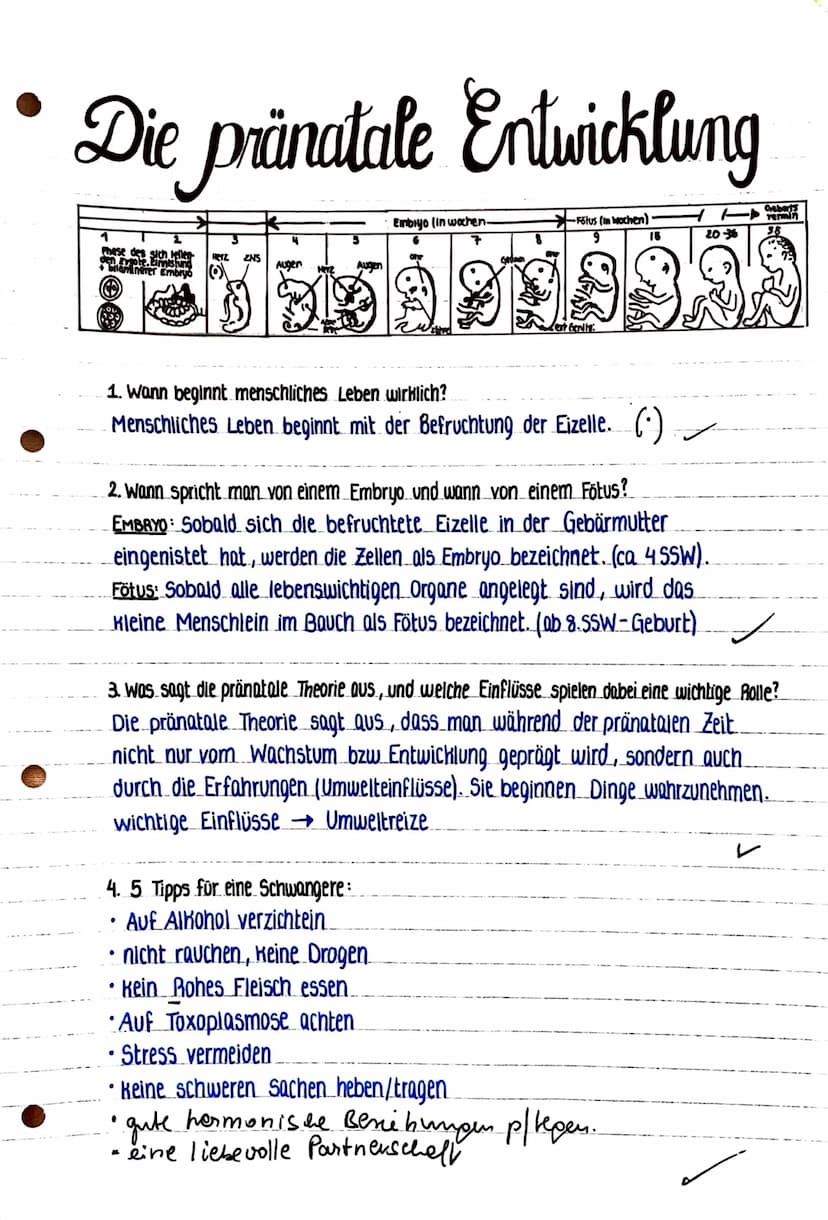 Die pränatale Entwicklung
Embryo (in wochen
Fötus (in Wochen)
Geburts
termin
1 2 3 4 5 6 7 8 9 16 20-36 38
Phase des sich teilen
den Zygote. Einnistung
+ bilaminärer Embryo
Herz ZNS
Augen Herz Augen
Ohr
Ohr
1. Wann beginnt menschliches Leben wirklich?
Menschliches Leben beginnt mit der Befruchtung der Eizelle.
2. Wann spricht man von einem Embryo und wann von einem Fötus?
EMBRYO: Sobald sich die befruchtete Eizelle in der Gebärmutter
eingenistet hat, werden die Zellen als Embryo bezeichnet. (ca 4 SSW).
Fötus: Sobald alle lebenswichtigen Organe angelegt sind, wird das
kleine Menschlein im Bauch als Fötus bezeichnet. (ab 8.SSW-Geburt)
3. Was sagt die pränatale Theorie aus, und welche Einflüsse spielen dabei eine wichtige Rolle?
Die pränatale Theorie sagt aus, dass man während der pränatalen Zeit
nicht nur vom Wachstum bzw Entwicklung geprägt wird, sondern auch
durch die Erfahrungen (Umwelteinflüsse). Sie beginnen Dinge wahrzunehmen.
wichtige Einflüsse → Umweltreize
4. 5 Tipps für eine Schwangere:
• Auf Alkohol verzichtein
• nicht rauchen, keine Drogen
• kein Rohes Fleisch essen
• Auf Toxoplasmose achten
• Stress vermeiden
• keine schweren Sachen heben/tragen
• gute harmonische Beziehungen pflegen.
- eine liebevolle Partnerschaft